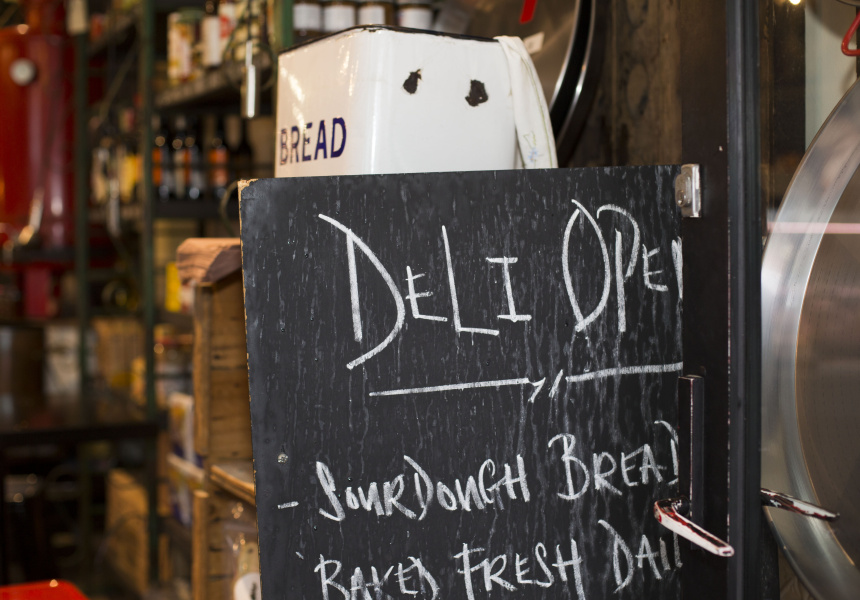 BREAD
DELI OPEN
- SOURDOUGH BREAD
BAKED FRESH DAIL